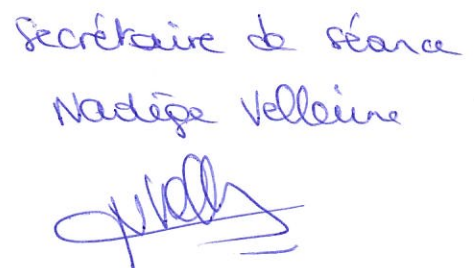 Secrétaire de séance
Nadège Velleine